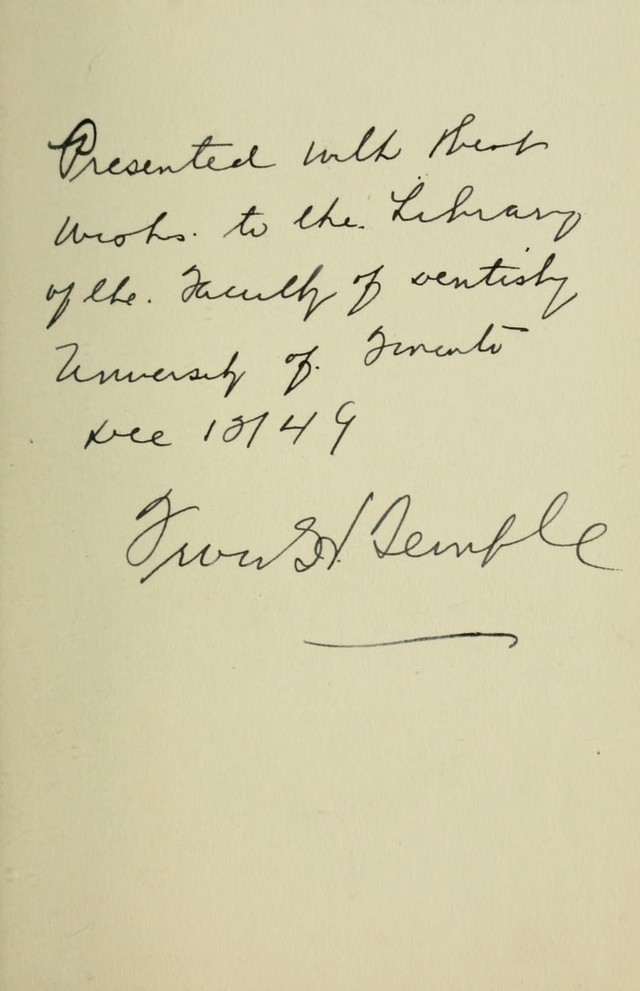 Presented with Best
Wishes. to the. Library
of the. Faculty of Dentistry
University of. Toronto
Dec 13/49
Temple